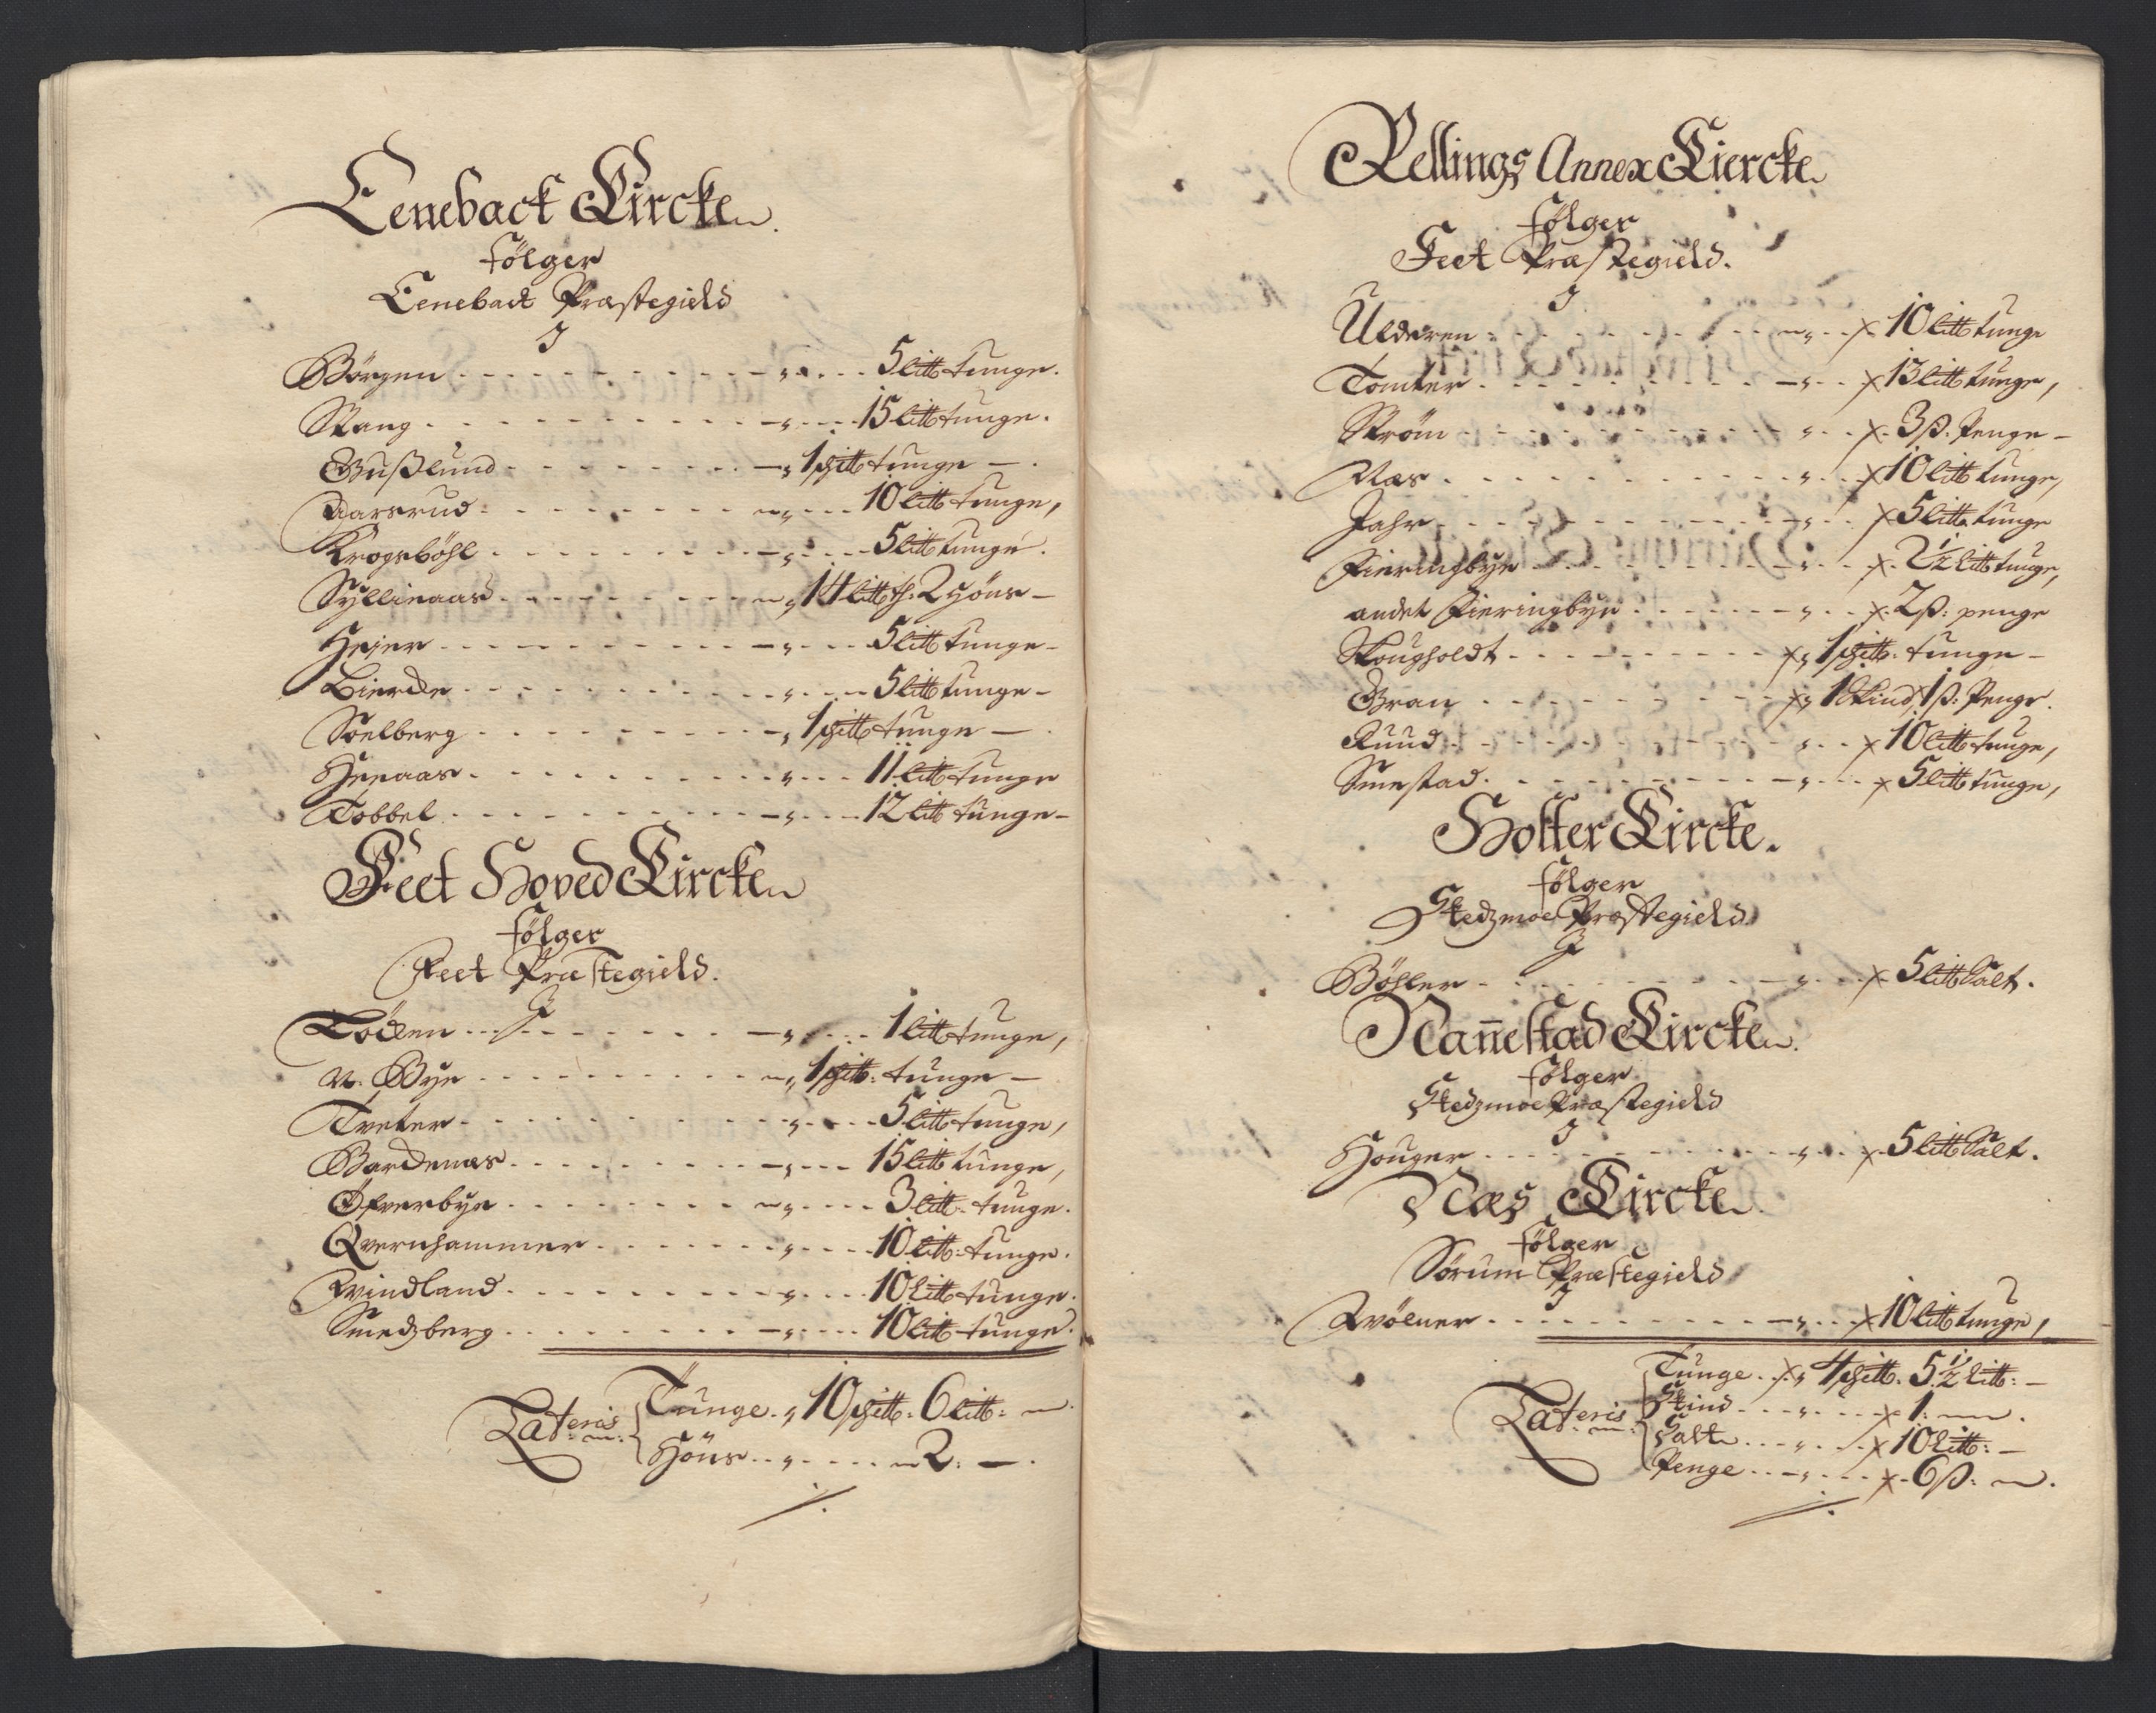 Eeneback Kircke
følger
Eenebact Præstegield
I
Börgen - - - 5 litt tunge.
Stang - - - 15 litt tunge.
Gusslund - - - 1 schitt tunge -
Aarsrud - - - 10 litt tunge,
Krogsböhl - - - 5 litt tunge.
Syllinaas - - - 14 litt t: 2 höns -
Heier - - - 5 litt tunge -
Bierche - - - 5 litt tunge -
Soelberg - - - 1 schitt tunge -
Heenaas - - - 11 litt tunge
Tobbel - - - 12 litt tunge -
Feet Hoved Kircke
følger
Feet Præstegield.
I
- - - 1 litt tunge,
N. Bye - - - 1 schitt: tunge -
Tveter - - - 5 litt tunge,
Gardenæs - - - 15 litt tunge,
Øfverbye - - - 3 litt tunge.
Qvernhammer - - - 10 litt: tunge.
Qvindland - - - 10 litt tunge.
Smedzberg - - - 10 litt tunge.
Lateris { Tunge - 10 schitt: 6 litt:
Höns - - - 2: -
Rellings Annex Kiercke
følger
Feet Præstegield.
I
Ulderen - - - x 10 litt tunge
Tomter - - - x 13 litt tunge,
Strøm - - - x 3 ß: Penge -
Næs - - - x 10 litt tunge,
Jahr - - - x 5 litt tunge
Fieringbye - - - x 2½ litt tunge,
andet Fieringbye - - - x 2 ß: penge
Skougholdt - - - x 1 schitt: tunge -
Gran - - - x 1 Skind x 1 ß: Penge.
Ruud - - - x 10 litt tunge,
Smestad - - - x 5 litt tunge,
Holter Kircke.
følger
Skedzmoe Præstegield
I
Böhler - - - x 5 litt Salt.
Nan̄estad Kircke
følger
Skedzmoe Præstegield
I
Houger - - - x 5 litt Salt.
Næs Kircke
følger
Sörum Præstegield
I
Qvölner - - - x 10 litt tunge,
Lateris { Tunge - x 4 schitt: 5½ litt: -
Skind - - - x 1:
Salt - - - x 10 litt: -
Penge - - - x 6 ß: